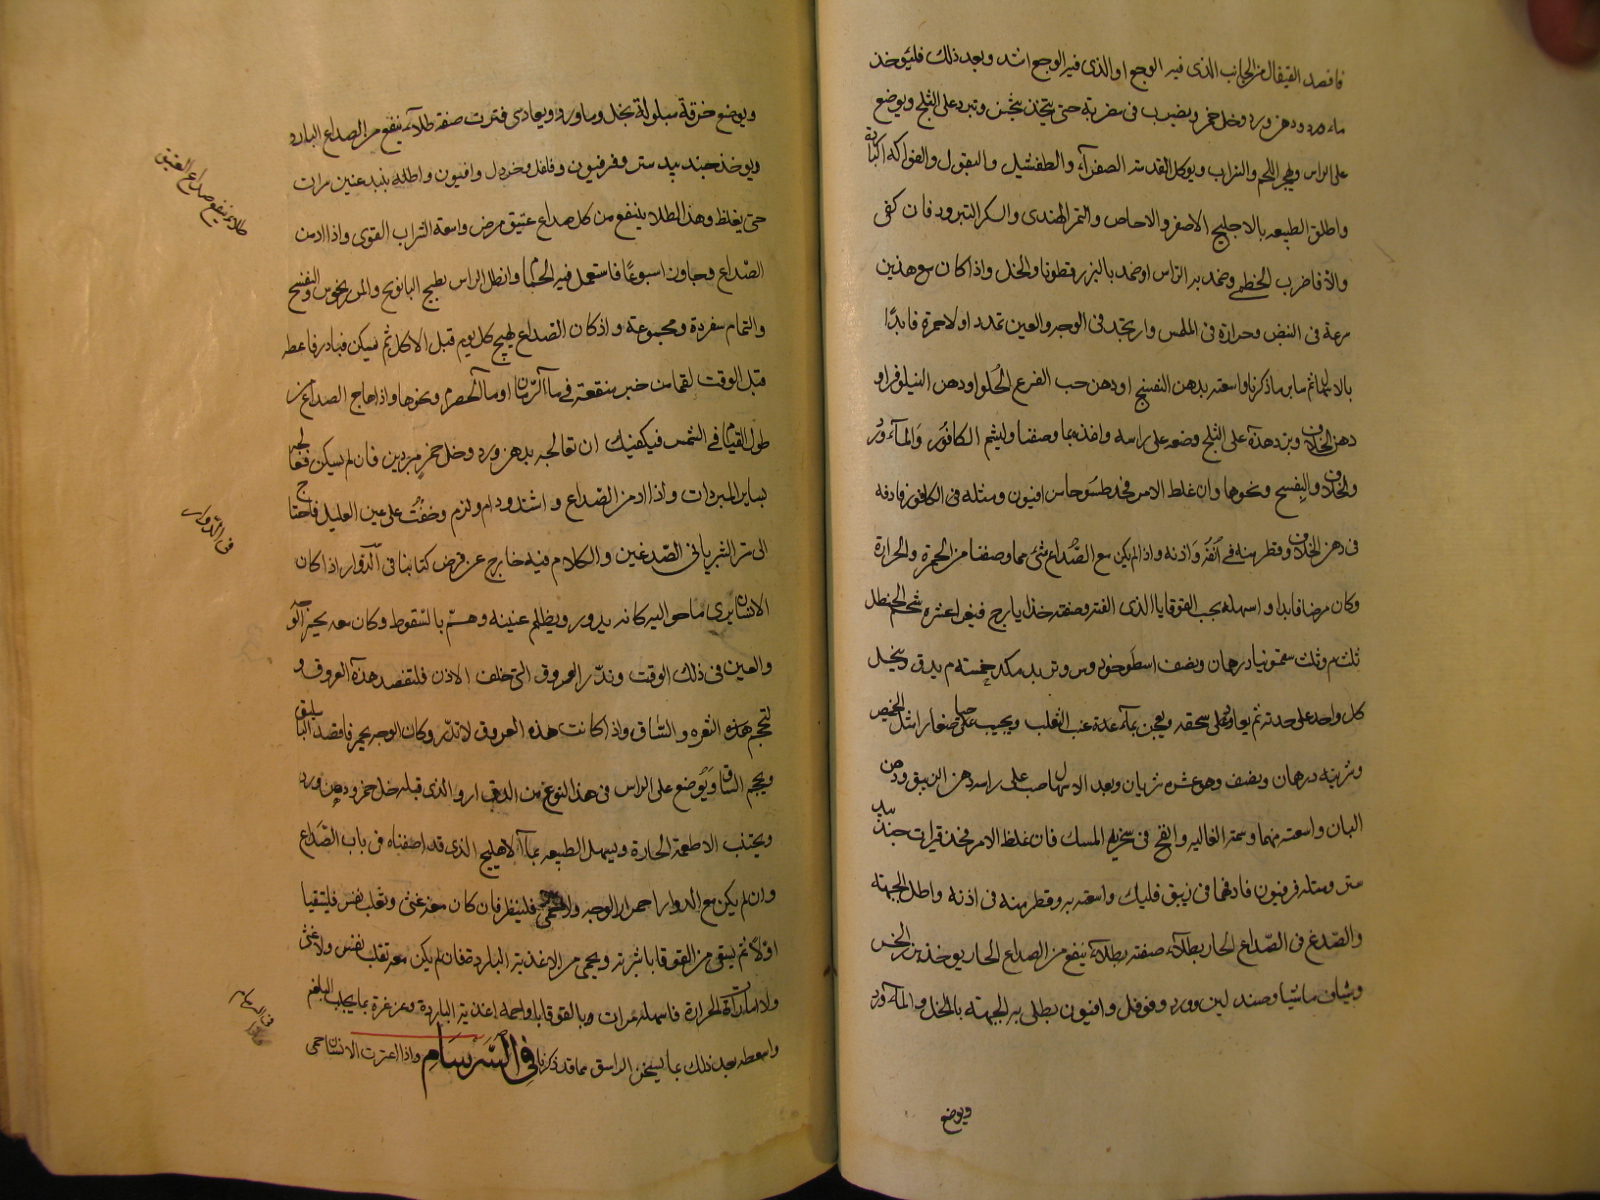 فافصد القيفال من الجانب الذى فيه الوجع او الذى فيه الوجع اشد وبعد ذلك فليؤخذ
ماء ورد ودهن ورد وخل خمر ويضرب فى مضربة حتى يتخذ يثخن وتبرد على الثلج ويوضع
على الراس ويهجر اللحم والشراب ويوكل العدسية الصفراء والطفشيل والبقول والفواكه
واطلق الطبيعه بالاهليلج الاصفر والاجاص والتمر الهندى والسكر التبرزد فان كفى
والا فاضرب الخطمى وضمد به الراس اوضمد بالبزر قطونا والخل واذا كان مع هذين
سرعة فى النبض وحرارة فى الملمس ولم تجد فى الوجه والعين تمدد اولا حمرة فابدأ
بالاسهال ثم ساير ما ذكرنا واسعته بدهن البنفسج اودهن حب القرع الحلو اودهن النيلوفر او
دهن الخلاف وبرد هذه على الثلج وضعه على راسه واغذه بما وصفنا وليشم الكافور والماء ورد
والخلاف والبنفسج ونحوها وان غلظ الامر فخذ طسوجا من افيون ومثله فى الكافور فادفه
فى دهن الخلاف وقطر منه فى انفه واذنه واذا لم يكن مع الصداع شئ مما وصفنا من الحمرة والحرارة
وكان مرضا فابدا واسهله بحب القوقايا الذى الفته وصفته خذ ايارج فيقرا عشره شحم الحنطل
ثلث م وثلث سقمونيا درهمان ونصف اسطوخودوس وتربد مكد خمسته م يدق وينخل
كل واحد على حدته ثم يعاود على سحقه ويعجن بماء عنب الثعلب ويحبب حبا صغارا مثل الحمص
وشربته درهمان ونصف وهو عشره شربات وبعد الاسهال صب على راسه دهن الزيبق ودهن
البان واسعته منهما وسمته الغاليه وانفخ فى منخريه المسك فان غلظ الامر فخذ قيراط جندبيد
ستر ومثله فرفيون فادفهما فى زيبق فليك واسعته به وقطر منه فى اذنه واطل الجبهة
والصدغ فى الصداع الحار بطلاء صفته بطلاء ينفع من الصداع الحار يوخذ بزر الخس
وشياف ماميثا وصندلين وورد وفوفل وافيون يطلى به الجبهة بالخل والماء ورد
ويوضع
ويوضع خرقة مبلولة بخل وماورد ويعاد متى فترت صفة طلاء ينفع من الصداع البارد
ويوخذ جندبيد ستر وفرفيون وفلفل وخردل وافيون واطله بنبيذ عتيق مرات
طلاء ينفع صداع العتيق
حتى يغلظ وهذا الطلا ينفع من كل صداع عتيق مرض واسعه الشراب القوى واذا ازمن
الصداع وجاوز اسبوعا فاستعمل فيه الحمام وانطل الراس بطبيخ البابونج والمرزنجوش والبنفسج
والنمام مفردة ومجموعة واذ كان الصداع يهيج كل يوم قبل الاكل ثم يسكن فبادر فاعطه
قبل الوقت لقما من خبز منقعة فى ماء الرمان او ماء الحصرم ونحوها واذا هاج الصداع من
طول القيام فى الشمس فيكفيك ان تعالجه بدهن ورد وخل خمر مبردين فان لم يسكن فعالجه
بساير المبردات واذا ازمن الصداع واشتد ودام ولزم وخفت على عين العليل فاحتاج
الى بتر الشريانى الصدغين والكلام فيه خارج عن غرض كتابنا فى الدوار اذا كان
فى الدوار
الانسان يرى ما حواليه كانه يدور ويظلم عينيه وهم بالسقوط وكان معه يحمر الو
والعين فى ذلك الوقت وتدر العروق التى خلف الاذن فلتفصد هذه العروق و
لتحجم هذه النقره والساق واذا كانت هذه العروق لا تدر وكان الوجه يحمر فافصد الباسليق
ويحجم الساق ويوضع على الراس فى هذا النوع من الدوار والذى قبله خل خمر ودهن ورد
ويجتنب الاطعمة الحارة ويسهل الطبيعه بماء الاهليلج الذى قد اصفناه فى باب الصداع
وان لم يكن مع الدوار احمرار الوجه ولا حمى فلينظر فان كان معه غثى وتقلب نفس فليتقيا
اولا ثم يسقى من القوقايا شربته ويحمى من الاغذية الباردة فان لم يكن معه تقلب نفس ولا غثى
ولا امارات الحرارة فاسهله مرات بالقوقايا واحمه اغذية الباردة وغرغره بما يجلب البلغم
فى السرسام
واسعطه بعد ذلك بما يسخن الراس مما قد ذكرنا فى السرسام واذا اعترت الانسان حمى